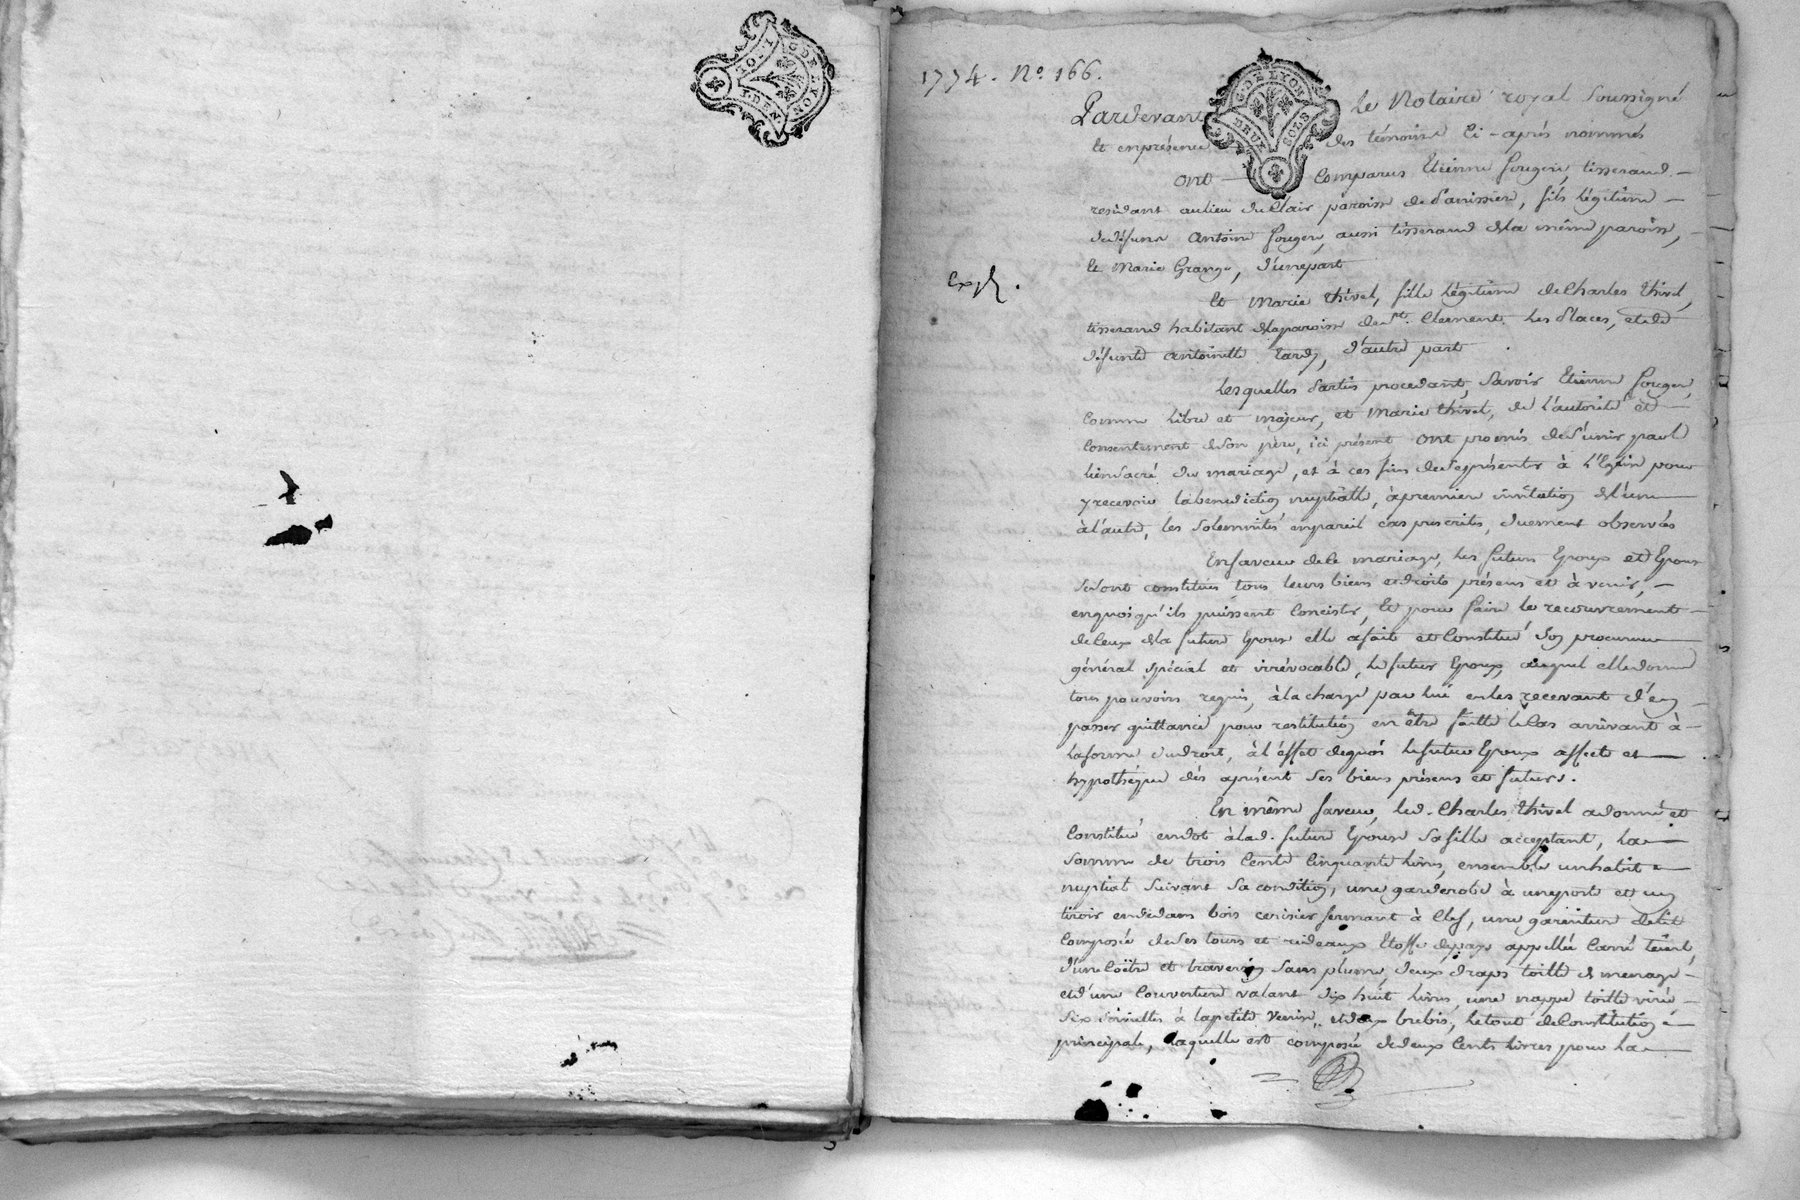 G. DE LYON
MOY.
1.DEN.
1774. N.º 166.
G. DE LYON
DEUX SOLS
Pardevant le Notaire royal soussigné
Et enprésence des témoins Ci-aprés nommés
ont Comparus Etienne fougere, tisserand
residant aulieu duClair paroisse de , fils légitime
dedéfunt Antoine fougere, aussi tisserand dela même paroisse,
Et Marie Grange, d'unepart
Exp.
Et Marie thivel, fille légitime deCharles thivel,
tisserand habitant delaparoisse deSt. Clement Les Places, etde
défunte antoinette , d'autre part
Lesquelles Parties procedant, Savoir Etienne fougere,
Comme Libre et majeur, et Marie thivel, de l'autorité et
Consentement deson père, ici présent ont promis deS'unir parle
lienSacré du mariage, et à ces fins deseprésenter à L'Eglise pour
y recevoir labenediction nuptialle, àpremiere invitation del'une
àl'autre, les Solemnités enpareil cas prescrites, duement observées
Enfaveur dece mariage, les futurs Epoux et Epouse
seSont constitués tous leurs biens etdroits présens et à venir,
enquoiqu'ils puissent Concister, Et pour faire le recouvrement
deCeux dela future Epouse elle afait et Constitué Son procureur
général spécial et irrévocable, le futur Epoux, auquel elledonne
tous pouvoirs requis, àla charge par lui enles recevant d'en
passer quittance pour restitution en être faitte leCas arrivant à
laforme dudroit, àl'effet dequoi lefutur Epoux affecte et
hypothéque dès aprésent Ses biens présens et futurs.
En même faveur, led. Charles thivel adonné et
Constitué endot àlad. future Epouse Safille acceptant, La
Somme de trois Cents Cinquante livres, ensemble unhabit
nuptial Suivant Sa condition, une garderobe à uneporte et un
tiroir endedans bois cerisier fermant à Clef, une garniture delit
Composée deSes tours et rideaux Etoffe depays appellée Carré teint,
d'une Coëtre et traversin Sans plume, deux draps toille de menage
etd'une Couverture valant dix huit livres, une nappe toille
Six Serviettes à lapetite Venise, etdeux brebis, letout deConstitution
principale, laquelle est composée dedeux Cents livres pour la